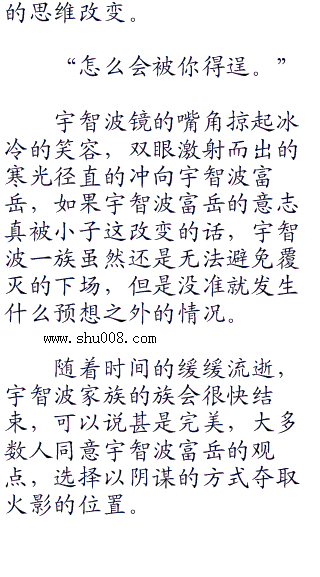 的思维改变。
“怎么会被你得逞。”
宇智波镜的嘴角掠起冰
冷的笑容，双眼激射而出的
寒光径直的冲向宇智波富
岳，如果宇智波富岳的意志
真被小子这改变的话，宇智
波一族虽然还是无法避免覆
灭的下场，但是没准就发生
什么预想之外的情况。
www.shu008.com
随着时间的缓缓流逝，
宇智波家族的族会很快结
束，可以说甚是完美，大多
数人同意宇智波富岳的观
点，选择以阴谋的方式夺取
火影的位置。